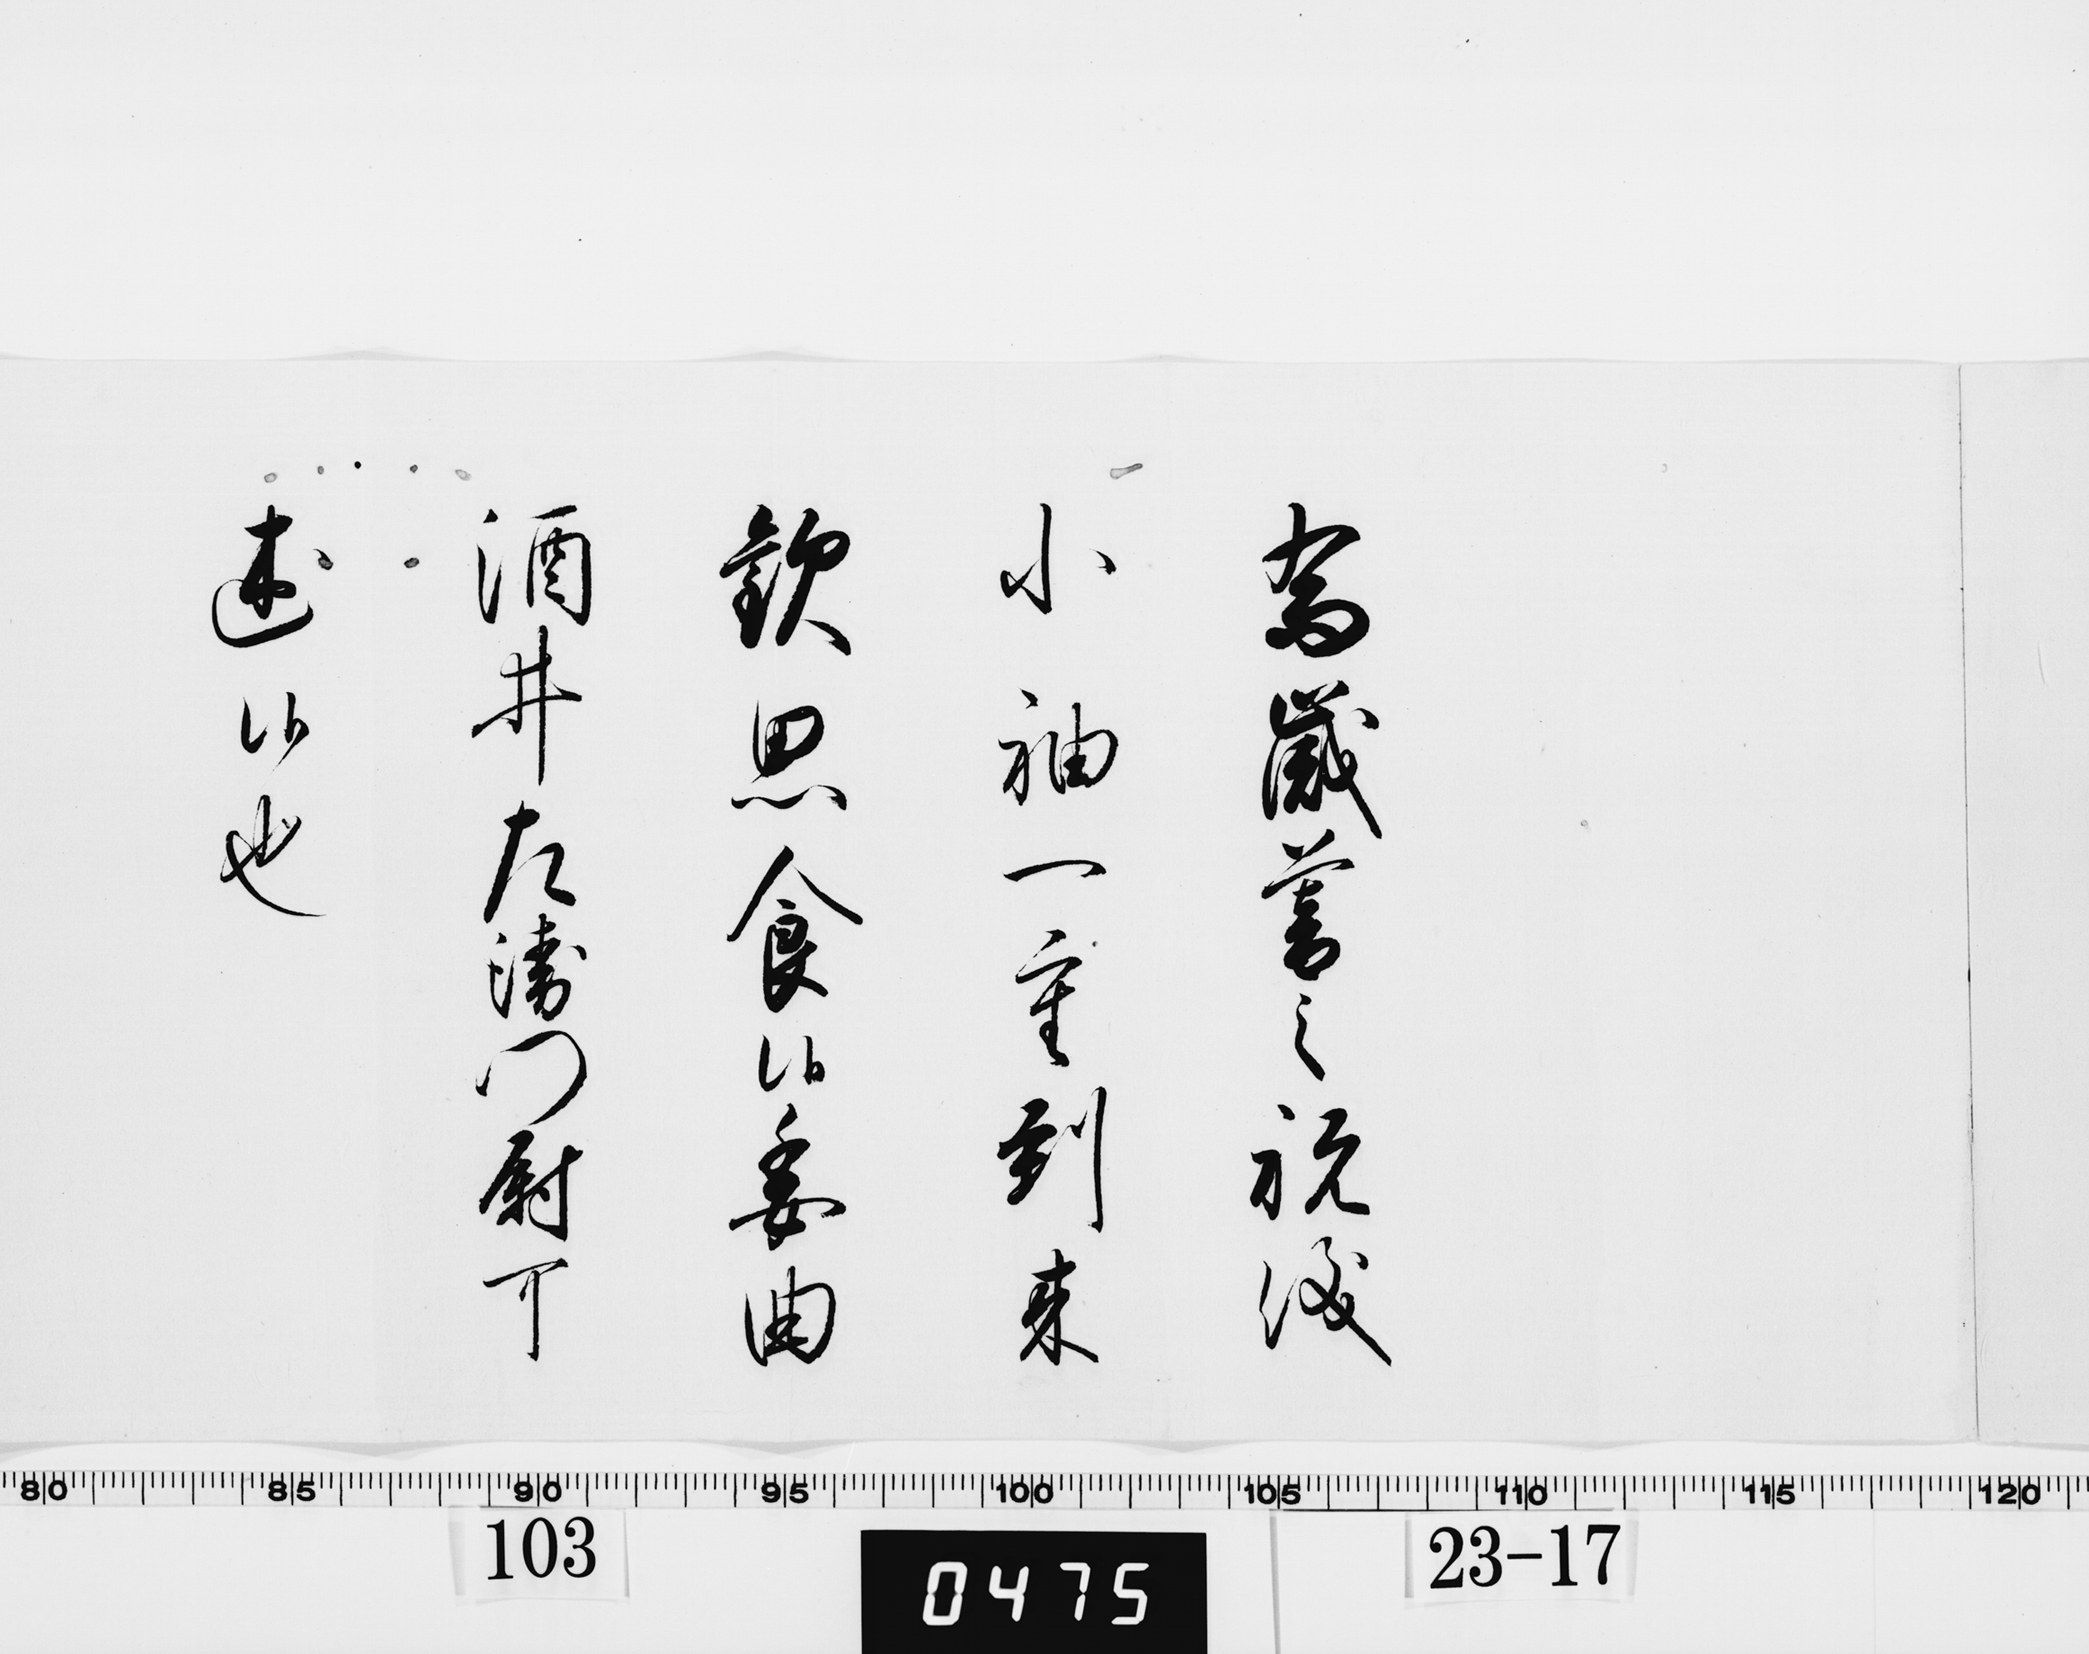 為歳暮之祝儀
小袖一重到来
歓思食候委曲
酒井左衛門尉可
述候也
80 85 90 95 100 105 110 115 120
103
0475
23-17